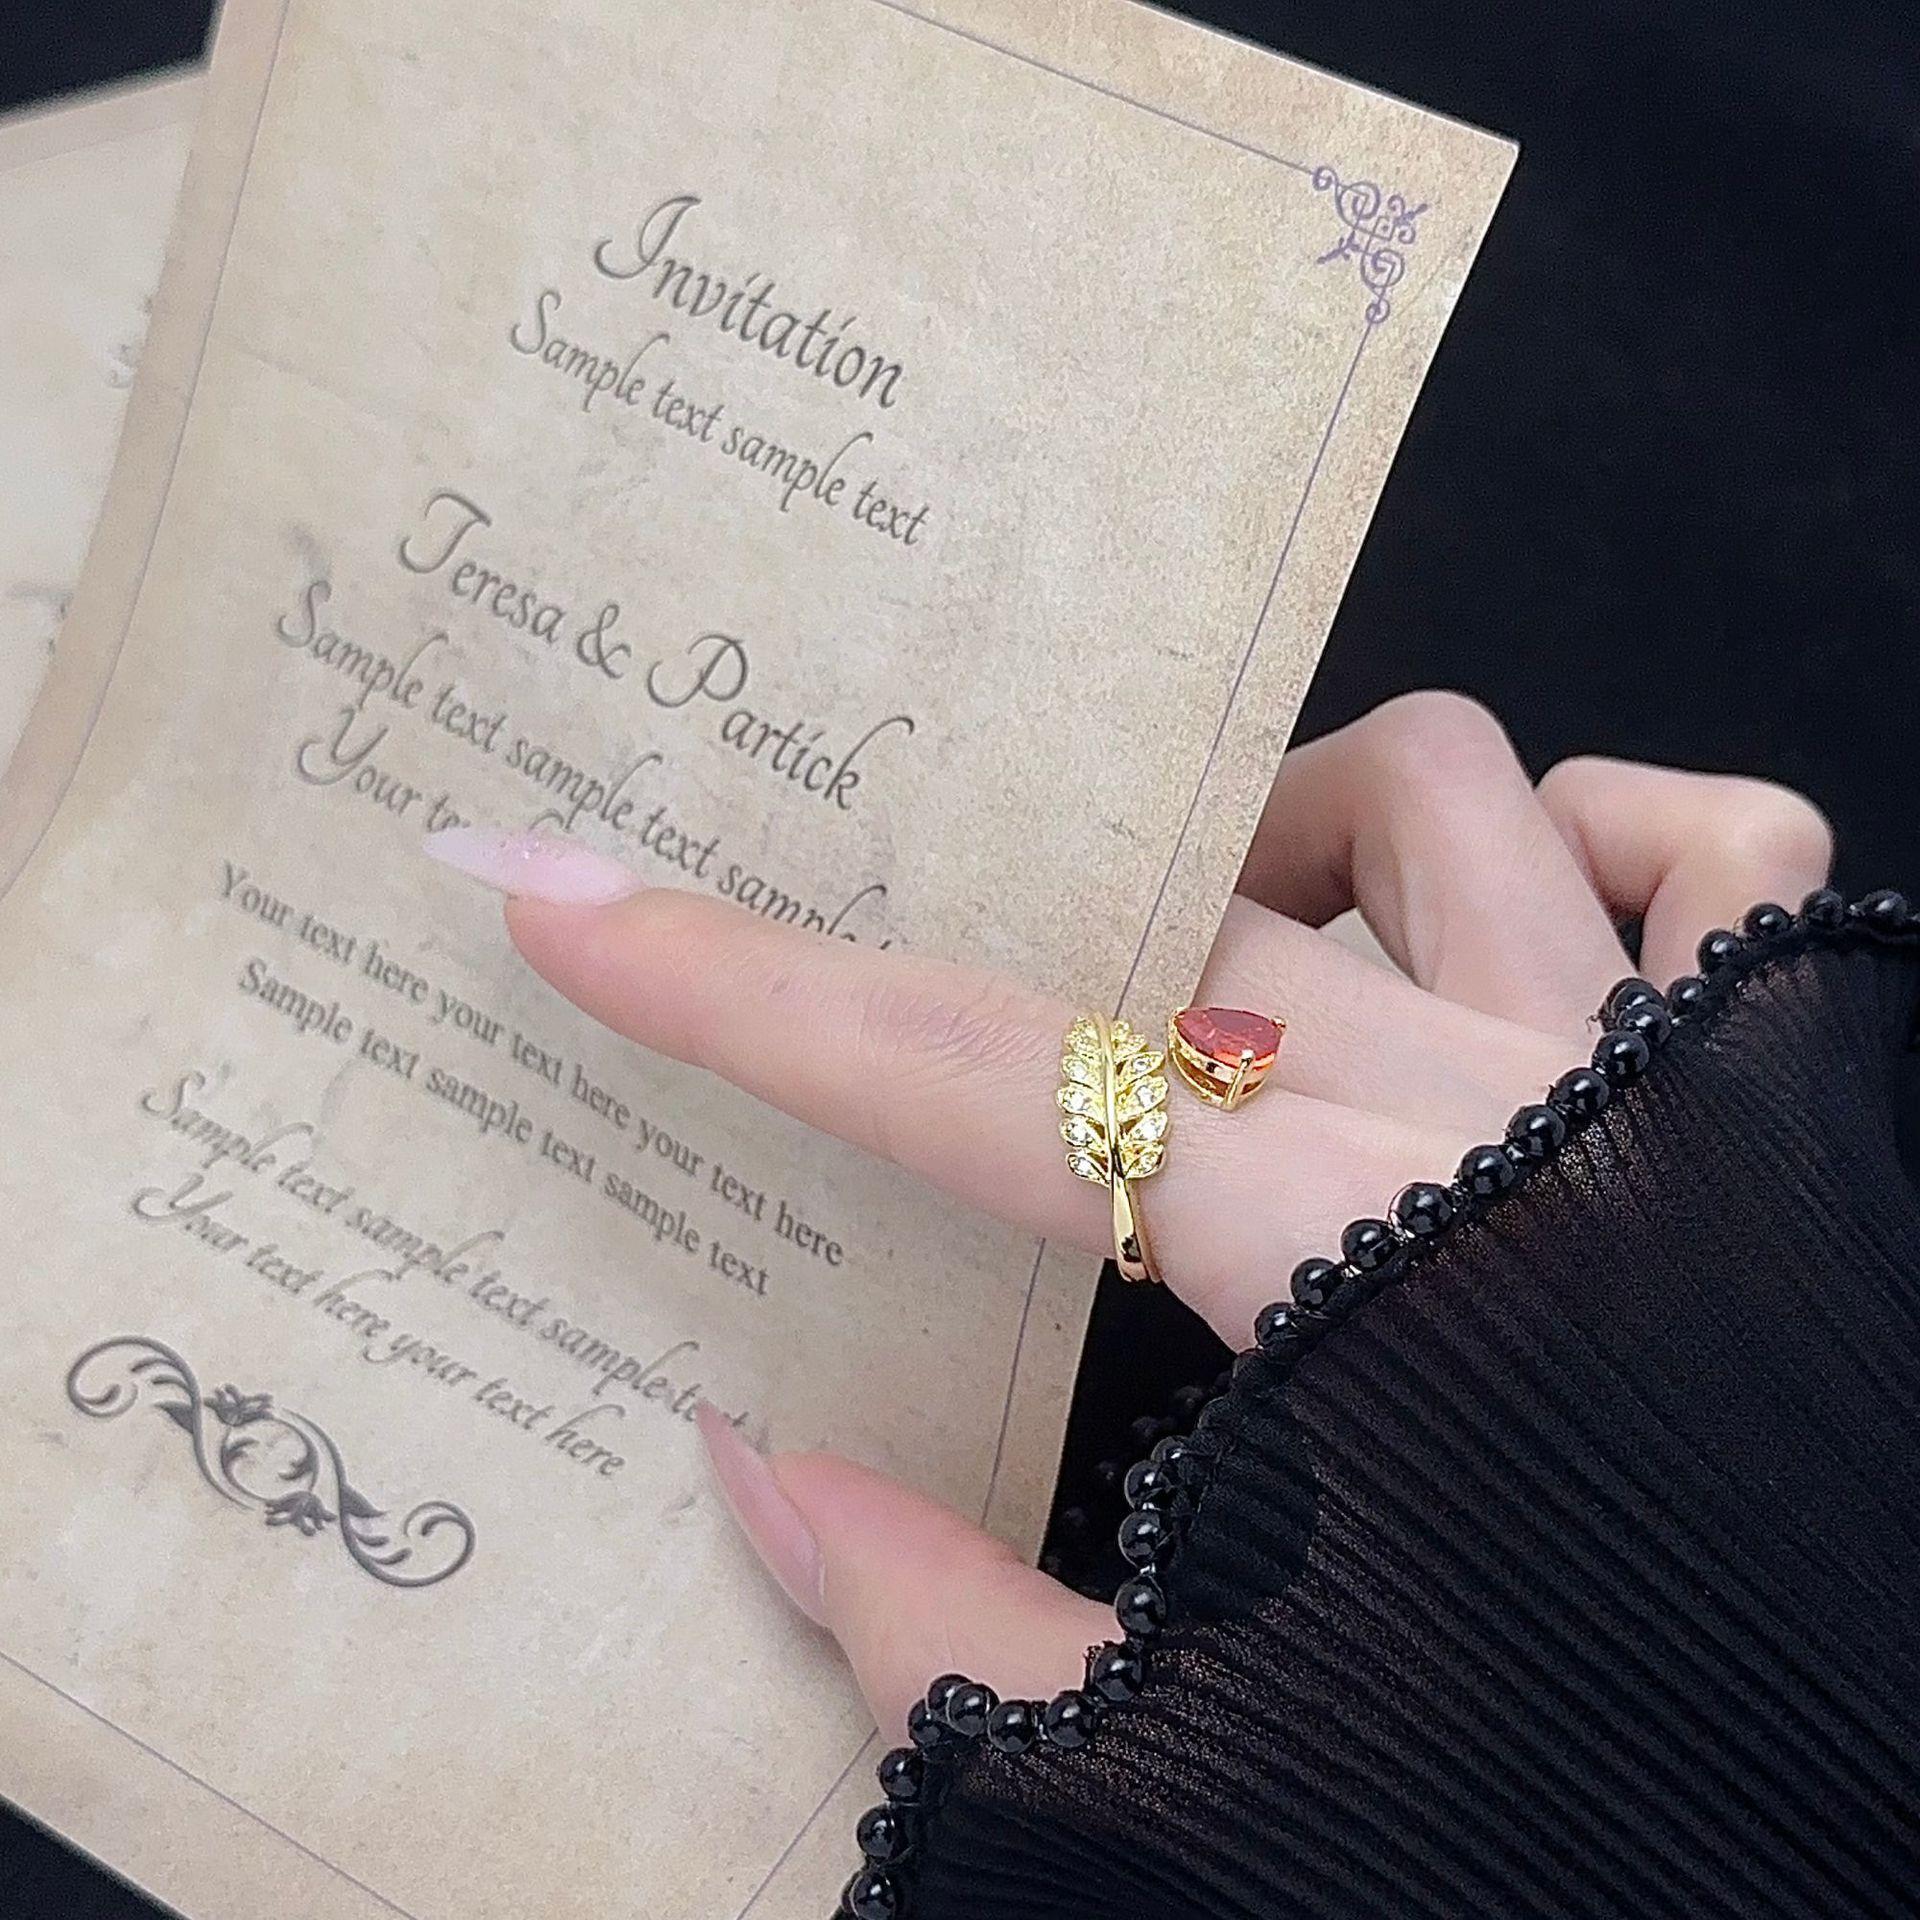 Invitation
Sample text sample text
Teresa & Partick
Sample text sample text sample
Your
Your text here your text here your text here
Sample text sample text sample text
Sample text sample text sample text
Your text here your text here